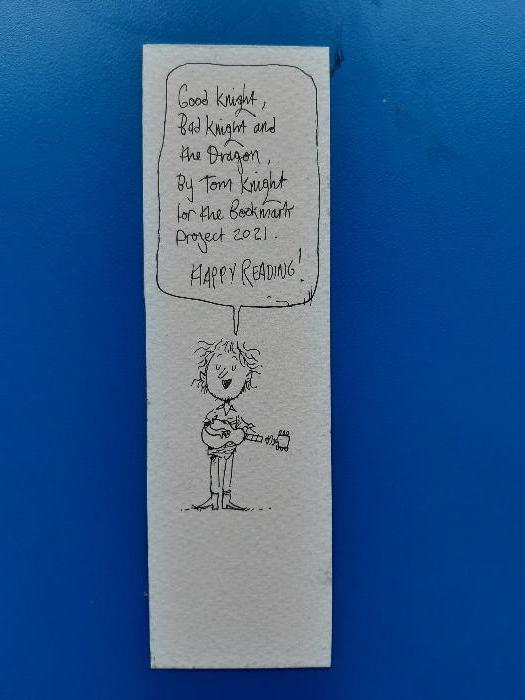 Good Knight,
Bad Knight and
the Dragon,
By Tom Knight
for the Bookmark
Project 2021.
HAPPY READING!